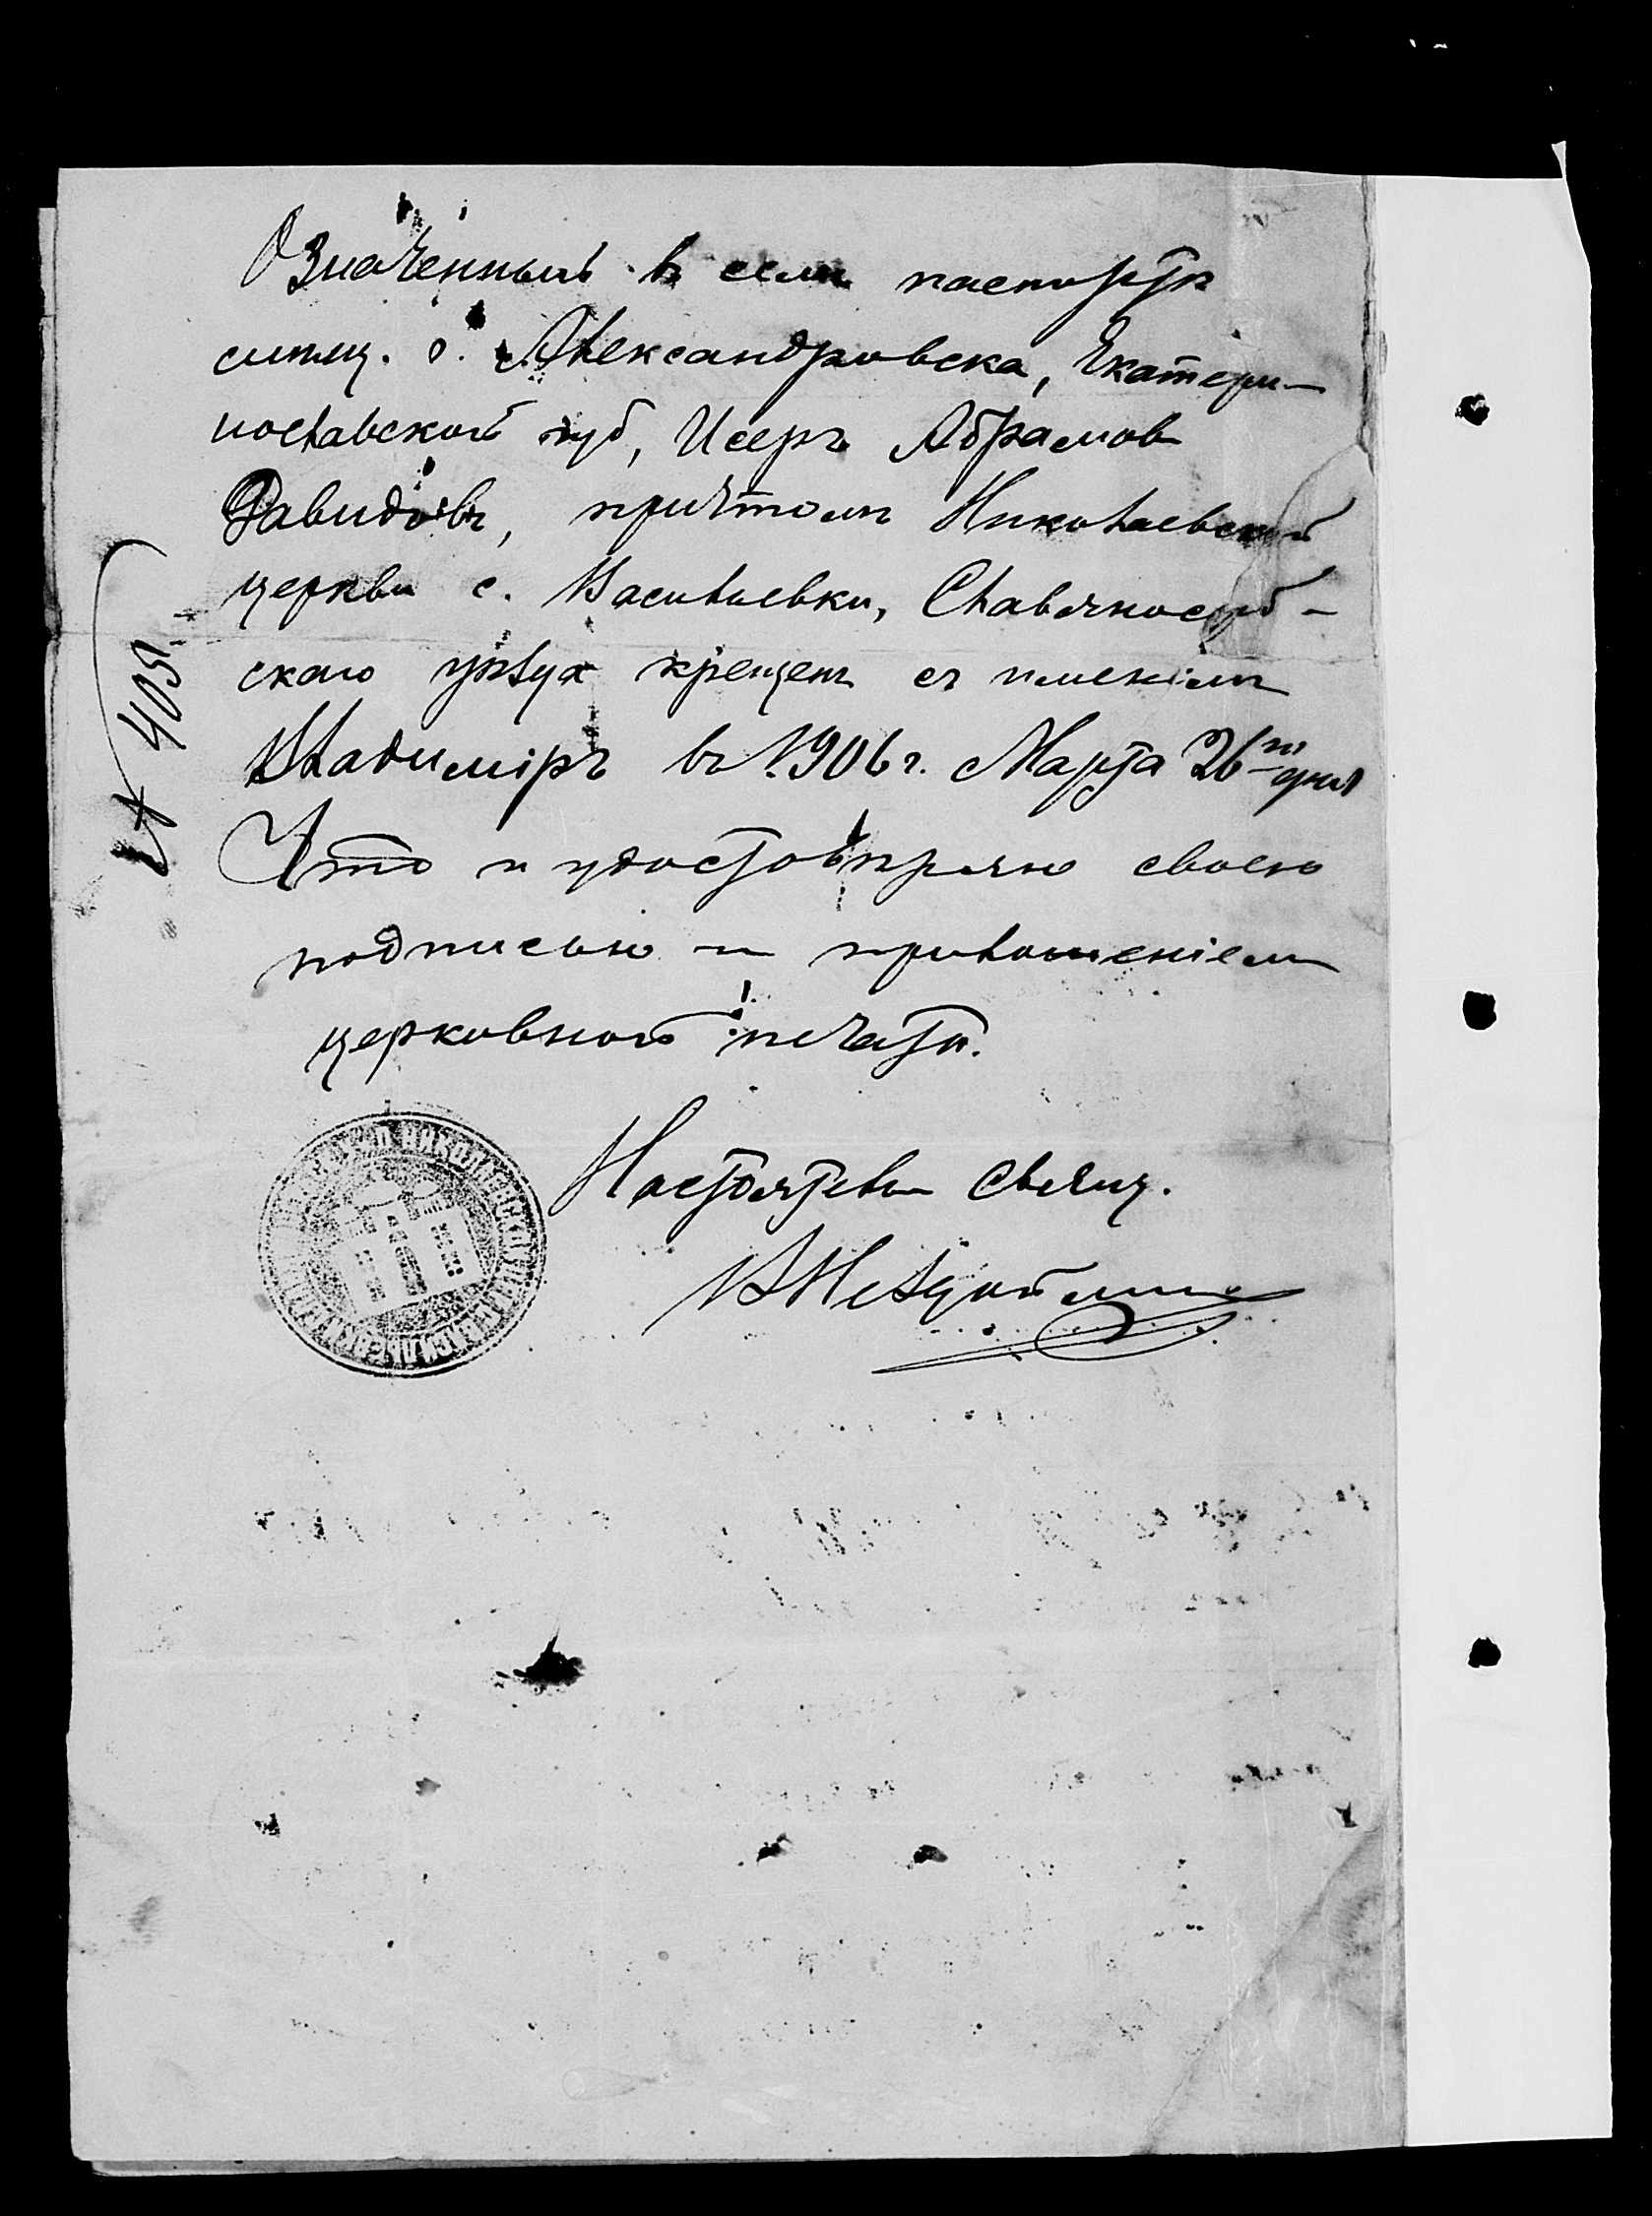 Означенный въ семъ паспортѣ
г. Александровска, Екатери-
нославской губ, Исеръ Абрамов
Давидовъ, причтомъ Николаевской
церкви с. Васильевки, Славяносерб-
скаго уѣзда крещенъ съ именемъ
Владиміръ въ 1906 г. Марта 26го дня
Что и удостовѣряю своею
подписью и приложеніемъ
церковной печати.
Настоятель Свящ.
403